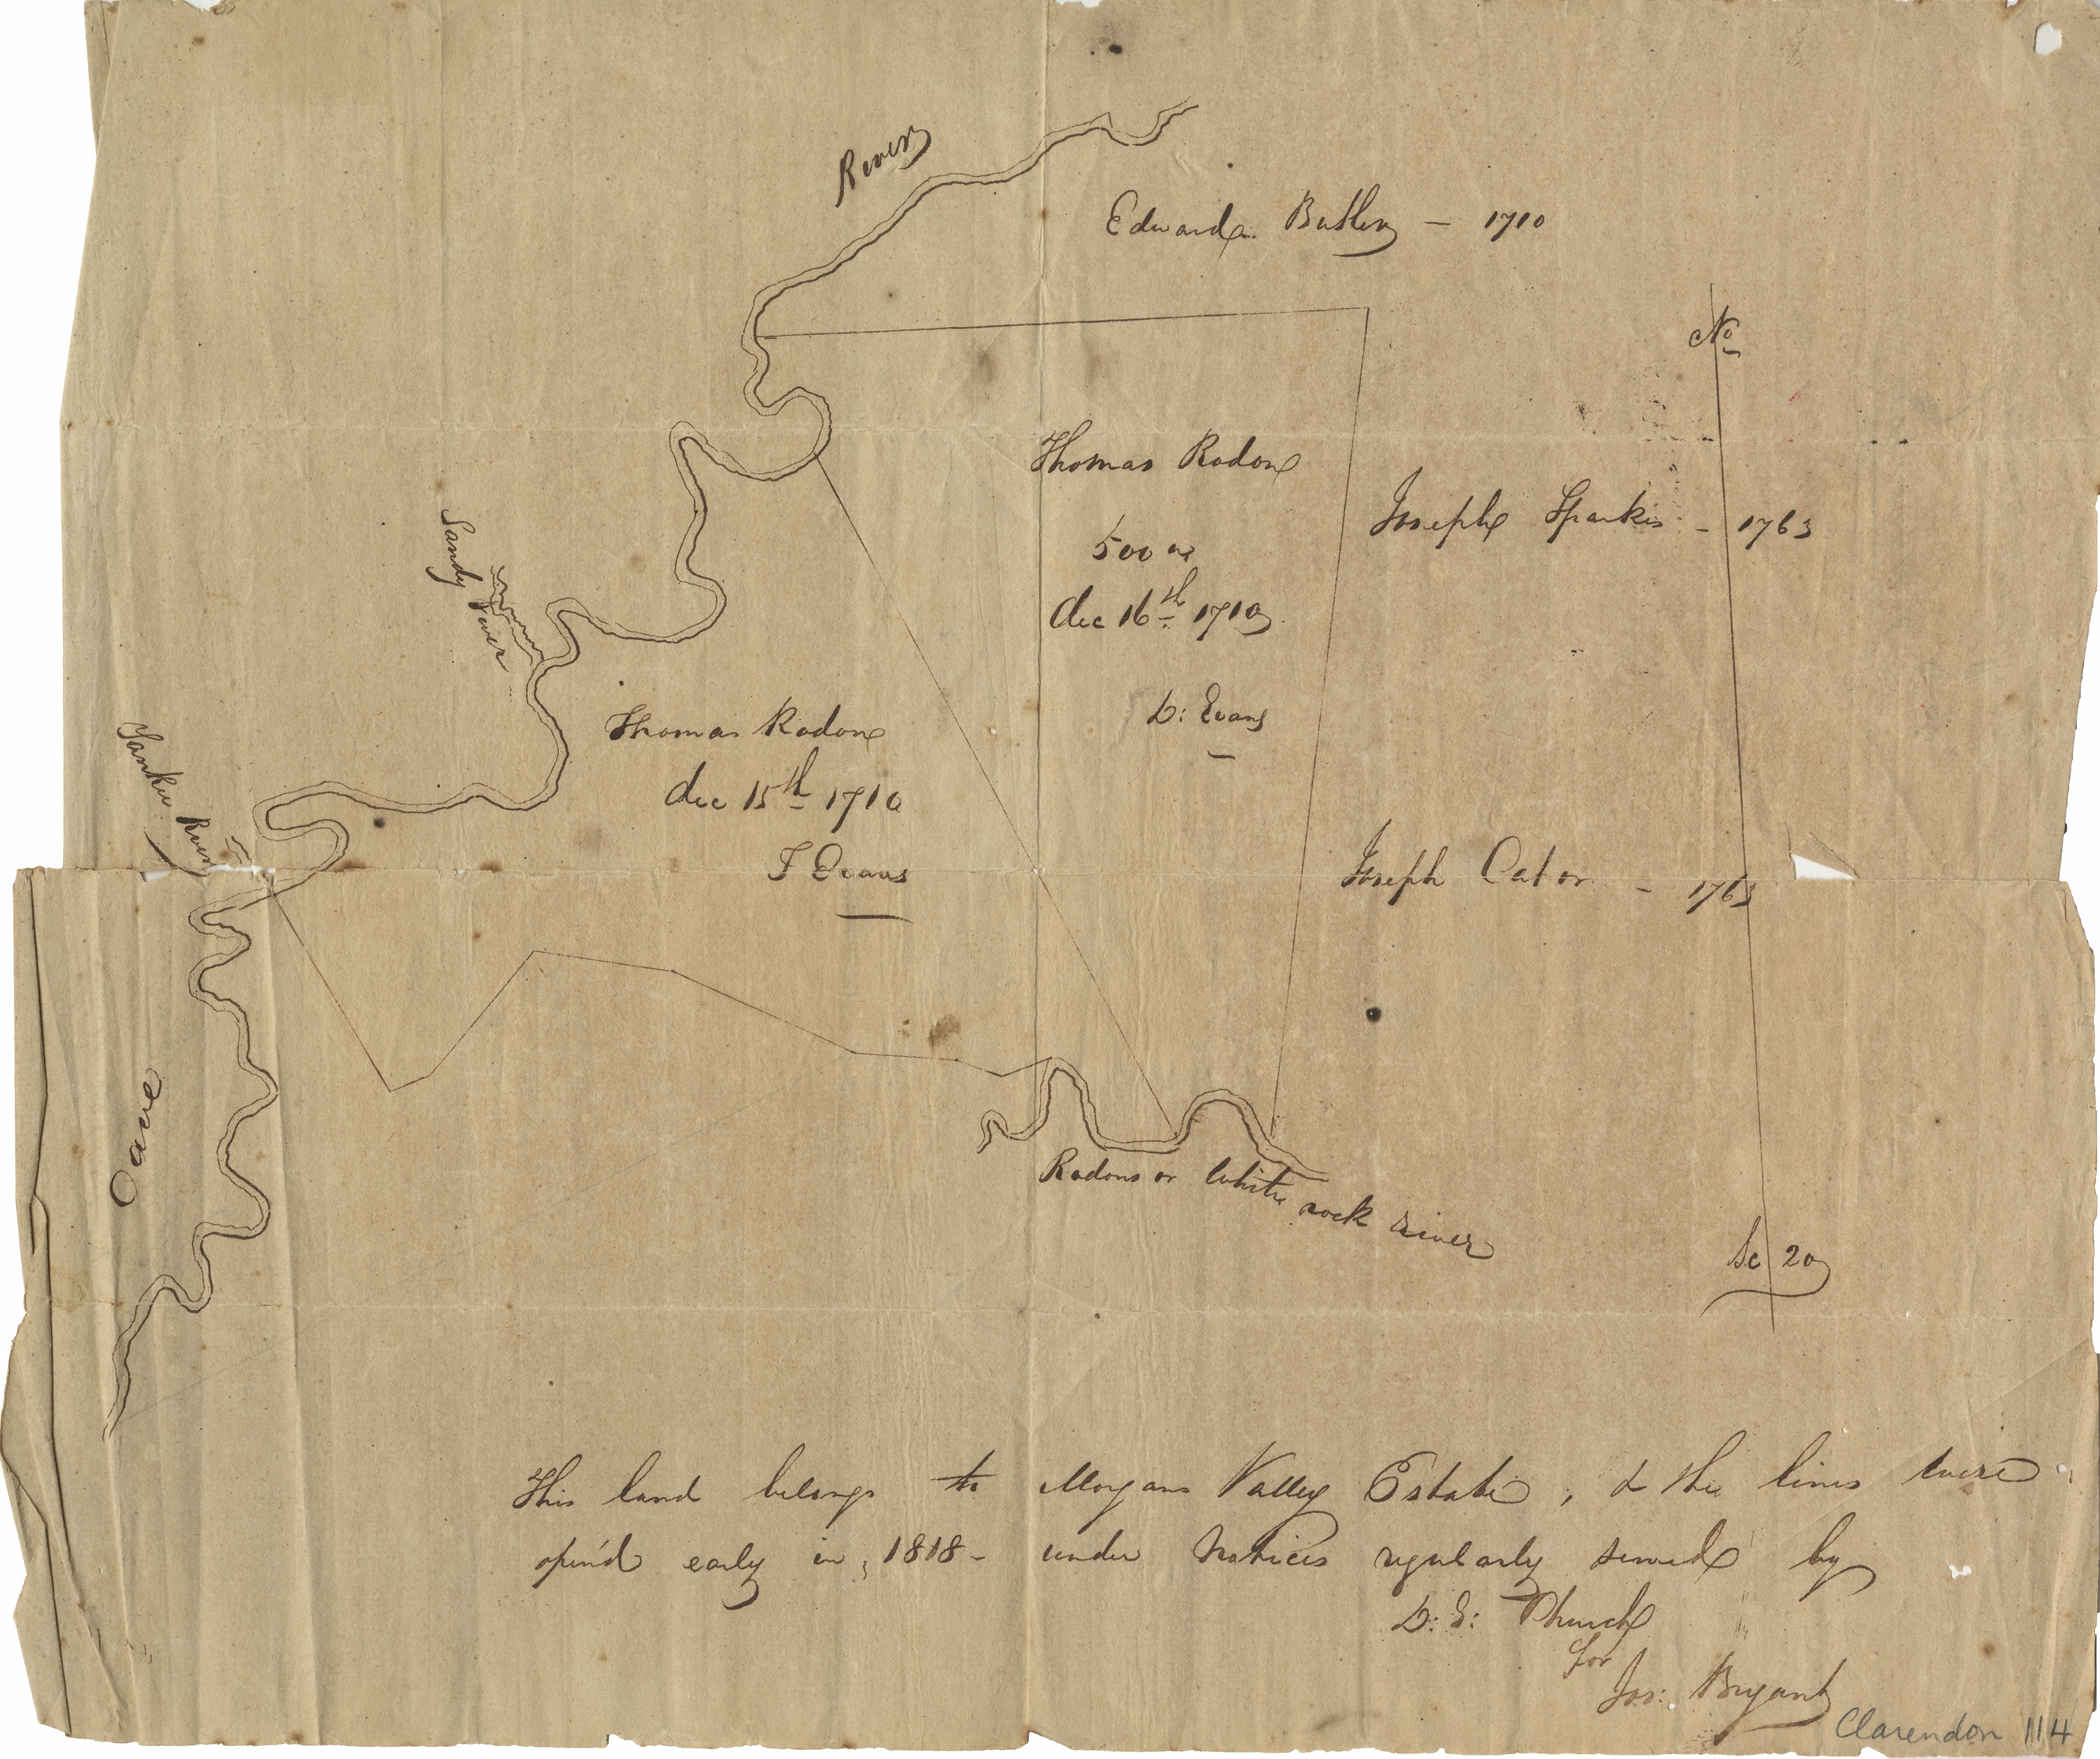 River
Edward Butler – 1710
No
Thomas Rodon
Joseph Sparkes – 1763
500 ac
Sandy River
dec 16th 1710
D: Evans
Thomas Rodon
dec 15th 1710
Tankee River
Joseph Cator – 1763
F Evans
Oane
Rodons or White rock river
Sc 20
This land belongs to Morgans Valley Estate, & the lines were
open'd early in, 1818 – under Notices regularly served by
D: S: Church
for
Jos: Bryant
Clarendon 114